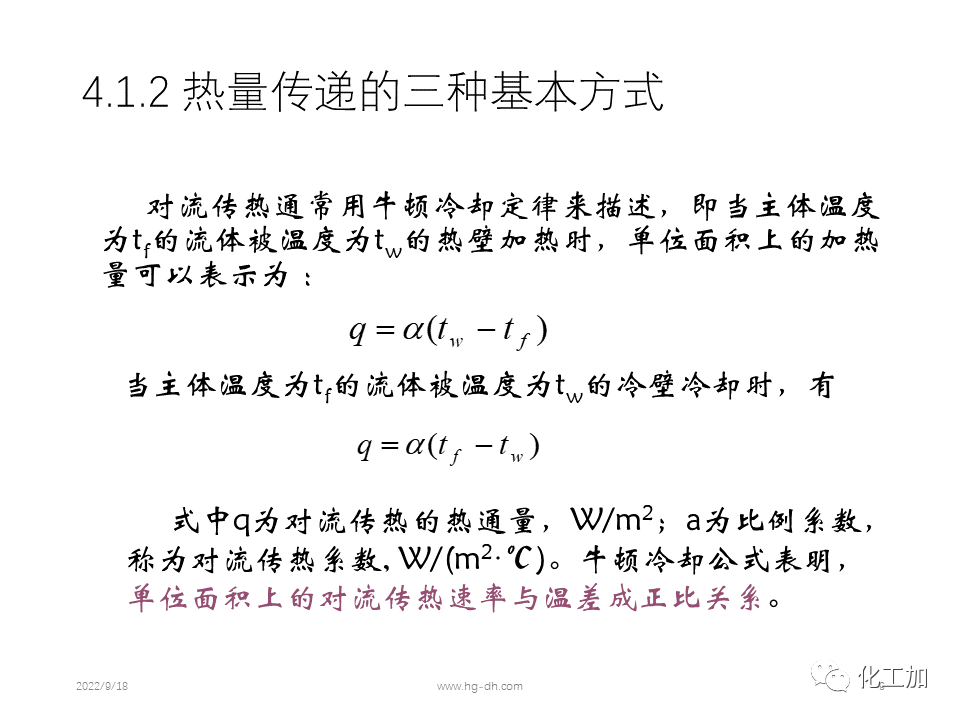 4.1.2 热量传递的三种基本方式
对流传热通常用牛顿冷却定律来描述，即当主体温度
为tf的流体被温度为tw的热壁加热时，单位面积上的加热
量可以表示为：
q = α(tw − tf)
当主体温度为tf的流体被温度为tw的冷壁冷却时，有
q = α(tf − tw)
式中q为对流传热的热通量，W/m²；a为比例系数，
称为对流传热系数, W/(m²·℃)。牛顿冷却公式表明，
单位面积上的对流传热速率与温差成正比关系。
2022/9/18
www.hg-dh.com
化工加